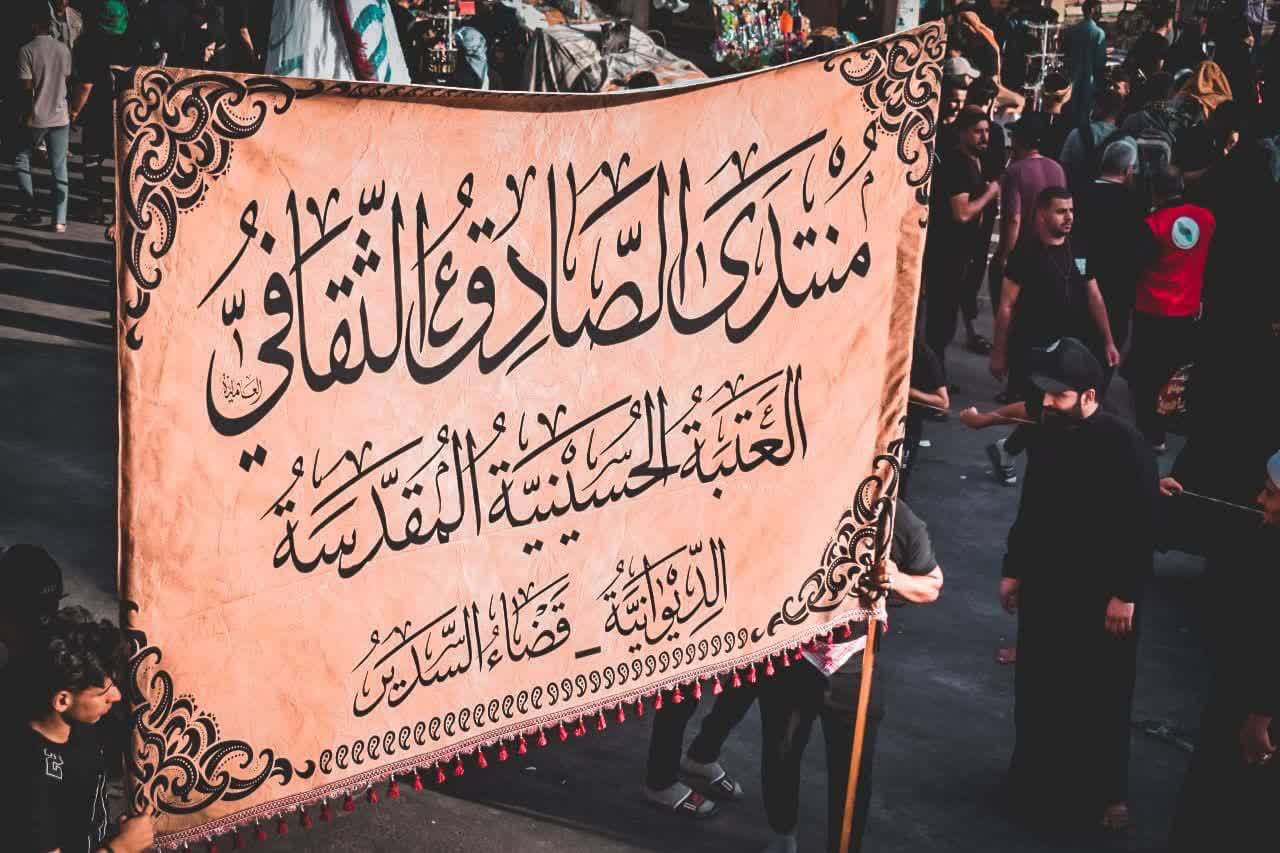 مُنْتَدَى الصَّادِقِ ع الثَّقَافِيُّ
العَتَبَةُ الحُسَيْنِيَّةُ المُقَدَّسَةُ
الدِّيْوَانِيَّةُ _ قَضَاءُ السَّدِيْرُ